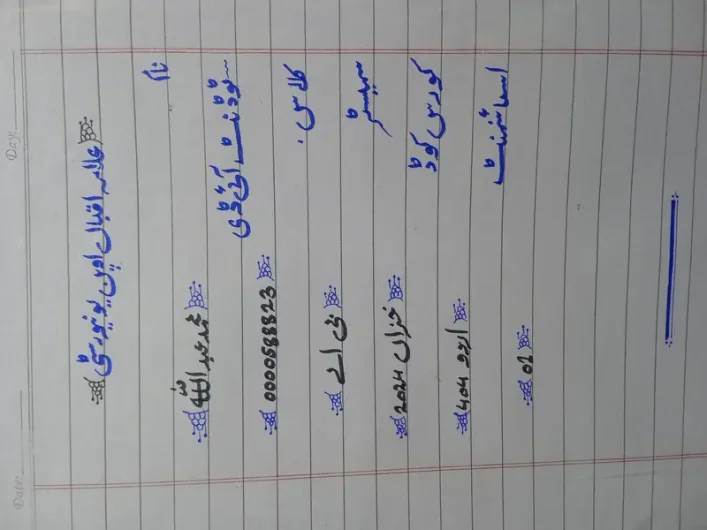 علامہ اقبال اوپن یونیورسٹی
نام محمد عبداللہ
سٹوڈنٹ آئی ڈی 0000688823
کلاس بی اے
سمیسٹر خزاں 2024
کورس کوڈ اردو 404
اسائنمنٹ 02
Day:
Date: